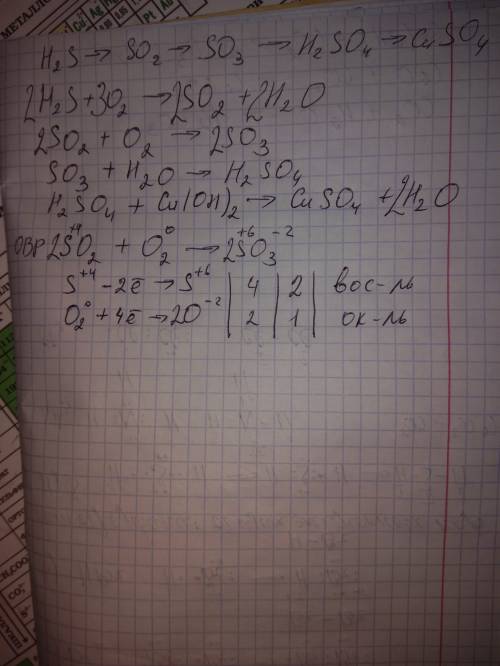 МЕТАЛЛО
H₂S → SO₂ → SO₃ → H₂SO₄ → CuSO₄
2H₂S + 3O₂ → 2SO₂ + 2H₂O
2SO₂ + O₂ → 2SO₃
SO₃ + H₂O → H₂SO₄
H₂SO₄ + Cu(OH)₂ → CuSO₄ + 2H₂O
ОВР 2S⁺⁴O₂ + O₂⁰ → 2S⁺⁶O₃⁻²
S⁺⁴ - 2ē → S⁺⁶ | 4 | 2 | вос-ль
O₂⁰ + 4ē → 2O⁻² | 2 | 1 | ок-ль